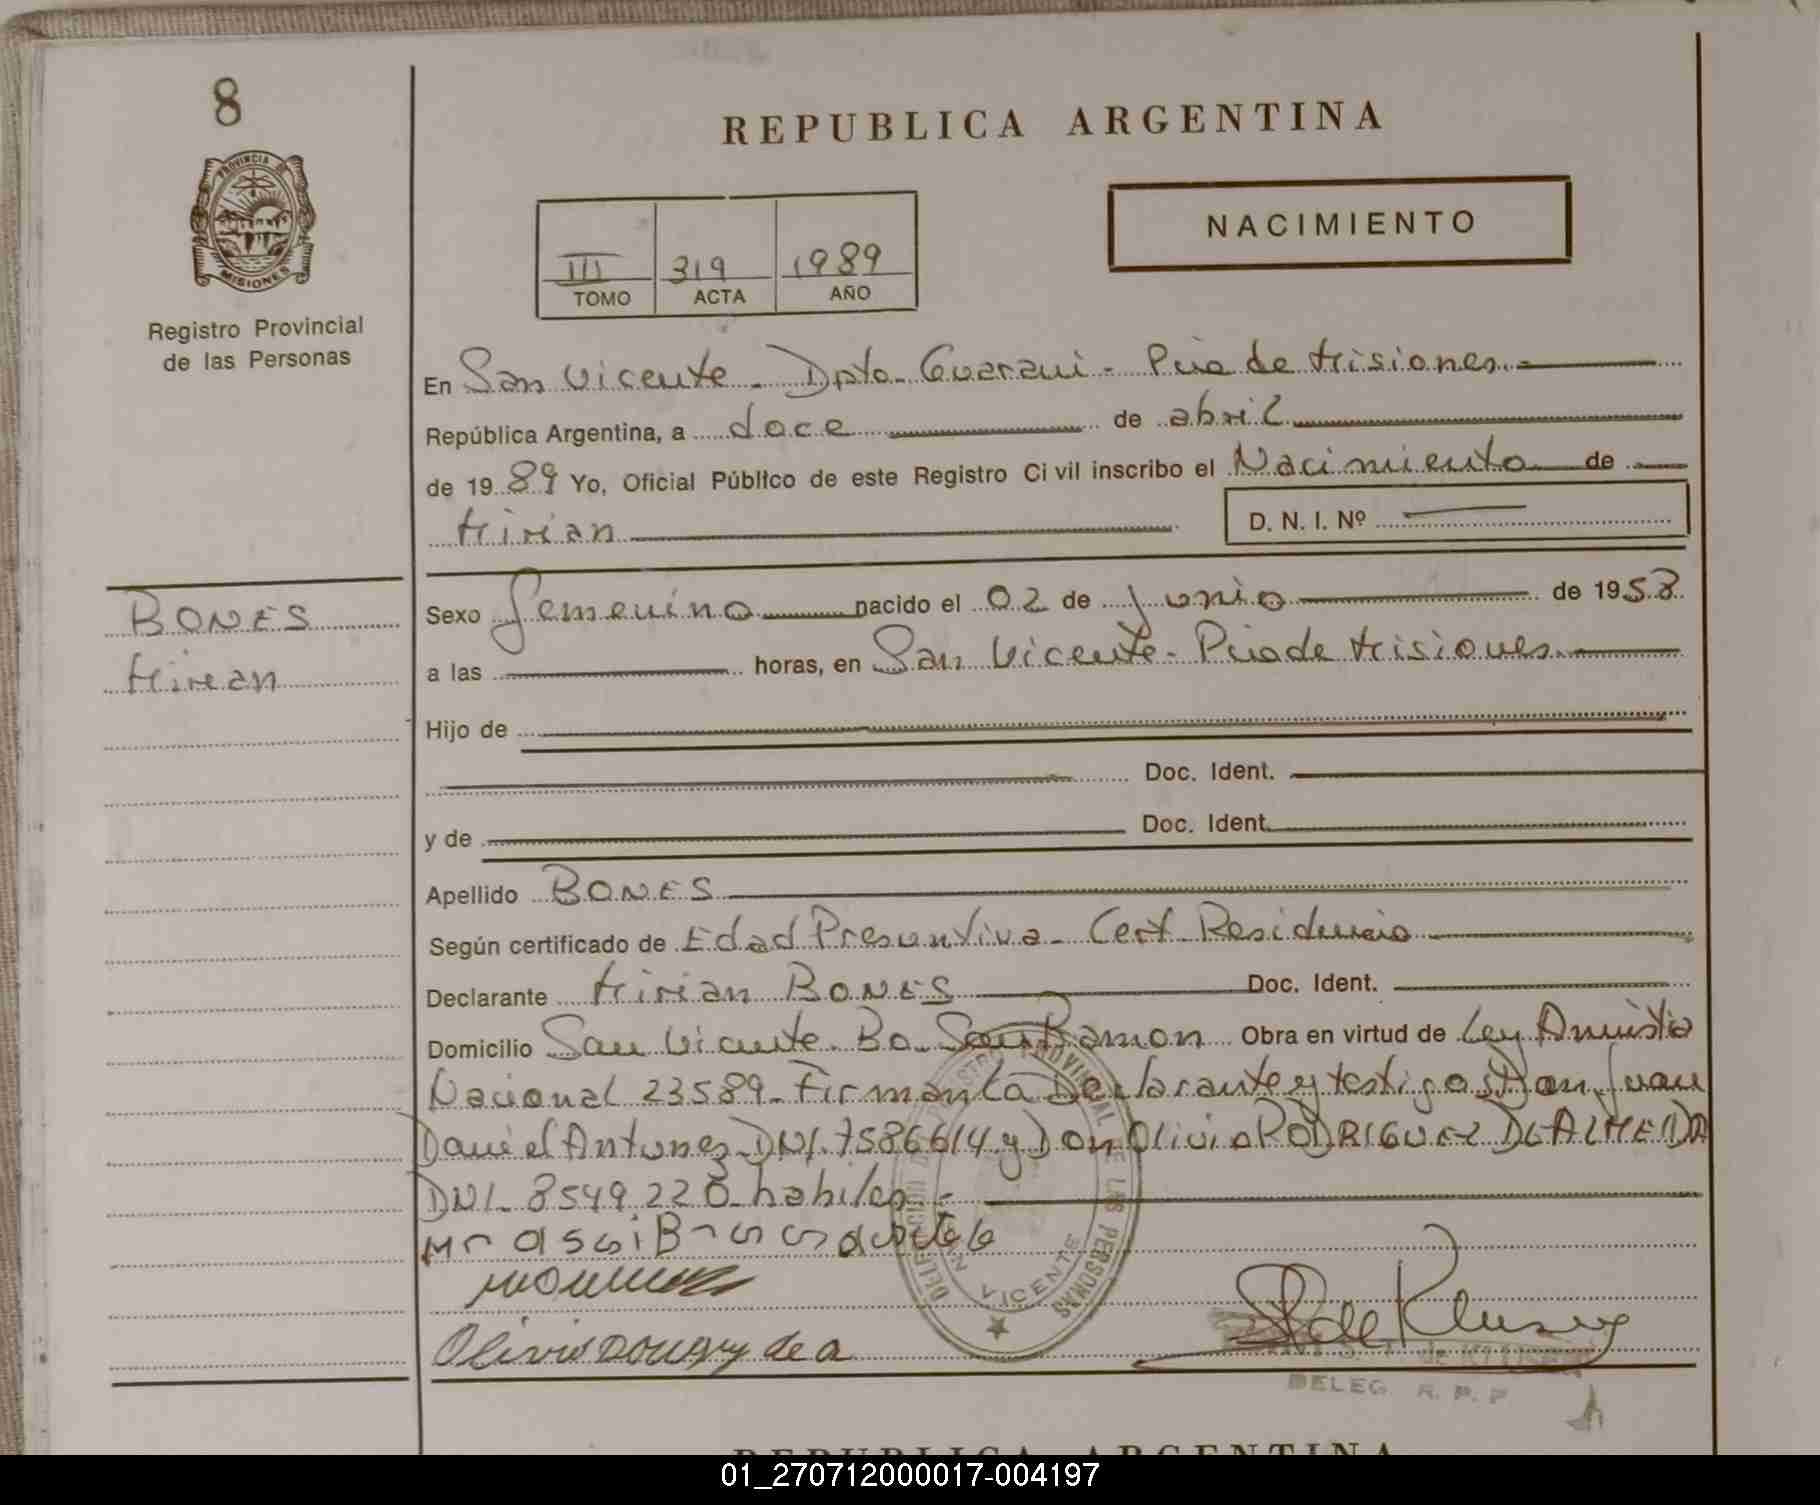 8
PROVINCIA DE
MISIONES
Registro Provincial
de las Personas
REPUBLICA ARGENTINA
III 319 1989
TOMO ACTA AÑO
NACIMIENTO
En San Vicente - Dpto. Guarani - Pcia de Misiones.-
República Argentina, a doce de abril
de 1989 Yo, Oficial Público de este Registro Civil inscribo el Nacimiento de
Mirian
D. N. I. Nº
BONES
Mirian
Sexo femenino nacido el 02 de junio de 1958
a las horas, en San Vicente - Pcia de Misiones.
Hijo de
Doc. Ident.
y de Doc. Ident.
Apellido BONES
Según certificado de Edad Presuntiva - Cert. Residencia
Declarante Mirian BONES Doc. Ident.
Domicilio San Vicente. Bo. San Ramon Obra en virtud de Ley Amnistia
Nacional 23589. Firman la Declarante y testigos Don Juan
Daniel Antunez DNI. 7586614 y Don Olivio RODRIGUEZ DE ALMEIDA
DNI. 8549.220 habiles.-
DELEGACION DEL REGISTRO PROVINCIAL DE LAS PERSONAS
SAN VICENTE
DELEG. R. P. P
REPUBLICA ARGENTINA
01_270712000017-004197